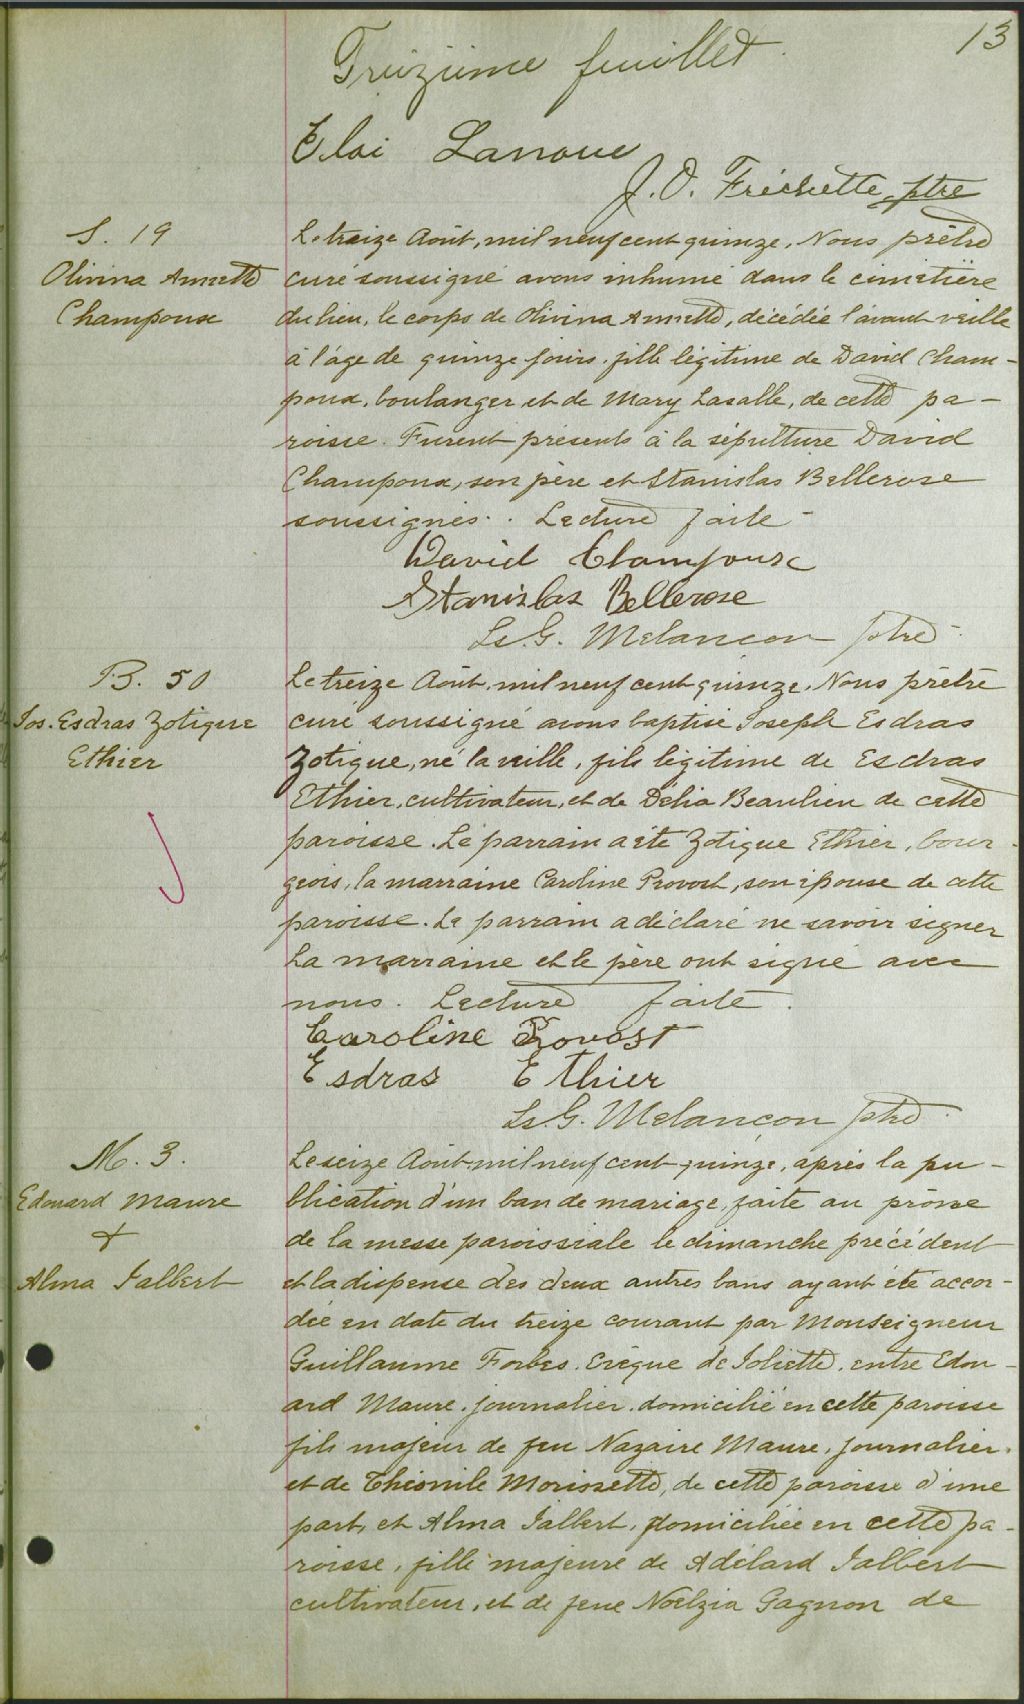 13
Treizième feuillet
Eloi Lanoue
J. O. Fréchette, ptre
S. 19
Olivina Annette
Champoux
Le treize Août, mil neuf cent quinze, Nous prêtre
curé soussigné avons inhumé dans le cimetière
du lieu, le corps de Olivina Annette, décédée l'avant veille
à l'âge de quinze jours, fille légitime de David Cham-
poux, boulanger et de Mary Lasalle, de cette pa-
roisse. Furent présents à la sépulture David
Champoux, son père et Stanislas Bellerose
soussignés. Lecture faite
David Champoux
Stanislas Bellerose
Ls. G. Melançon ptre
B. 50
Jos. Esdras Zotique
Ethier
Le treize Août, mil neuf cent quinze, Nous prêtre
curé soussigné avons baptisé Joseph Esdras
Zotique, né la veille, fils légitime de Esdras
Ethier, cultivateur, et de Délia Beaulieu de cette
paroisse. Le parrain a été Zotique Ethier, bour-
geois, la marraine Caroline Provost, son épouse de cette
paroisse. Le parrain a déclaré ne savoir signer
La marraine et le père ont signé avec
nous. Lecture faite.
Caroline Provost
Esdras Ethier
Ls. G. Melançon ptre
M. 3.
Edouard Maure
+
Alma Jalbert
Le seize Août mil neuf cent quinze, après la pu-
blication d'un ban de mariage, faite au prône
de la messe paroissiale le dimanche précédent
et la dispense des deux autres bans ayant été accor-
dée en date du treize courant par Monseigneur
Guillaume Forbes, Evêque de Joliette, entre Edou-
ard Maure, journalier, domicilié en cette paroisse
fils majeur de feu Nazaire Maure, journalier,
et de Théonile Morissette, de cette paroisse d'une
part, et Alma Jalbert, domiciliée en cette pa-
roisse, fille majeure de Adélard Jalbert
cultivateur, et de feue Noelzia Gagnon de